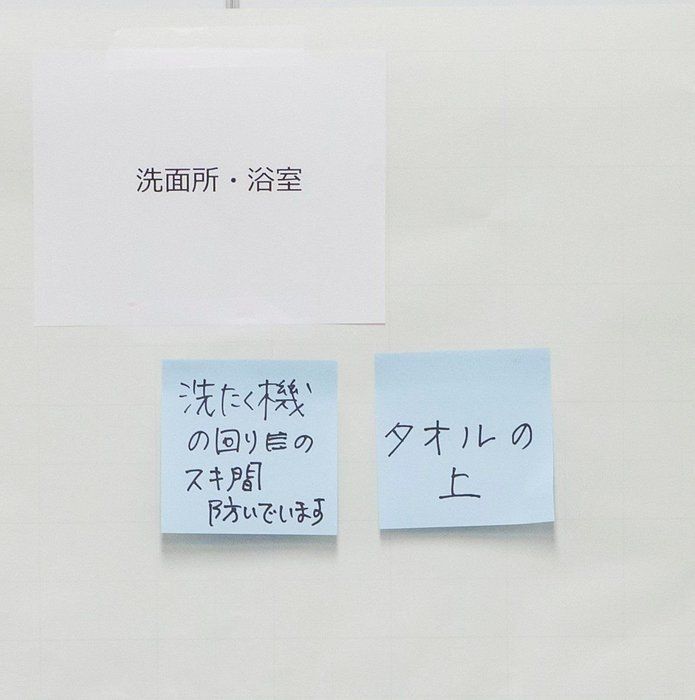 洗面所・浴室
洗たく機
の回りの
スキ間
防いでいます
タオルの
上